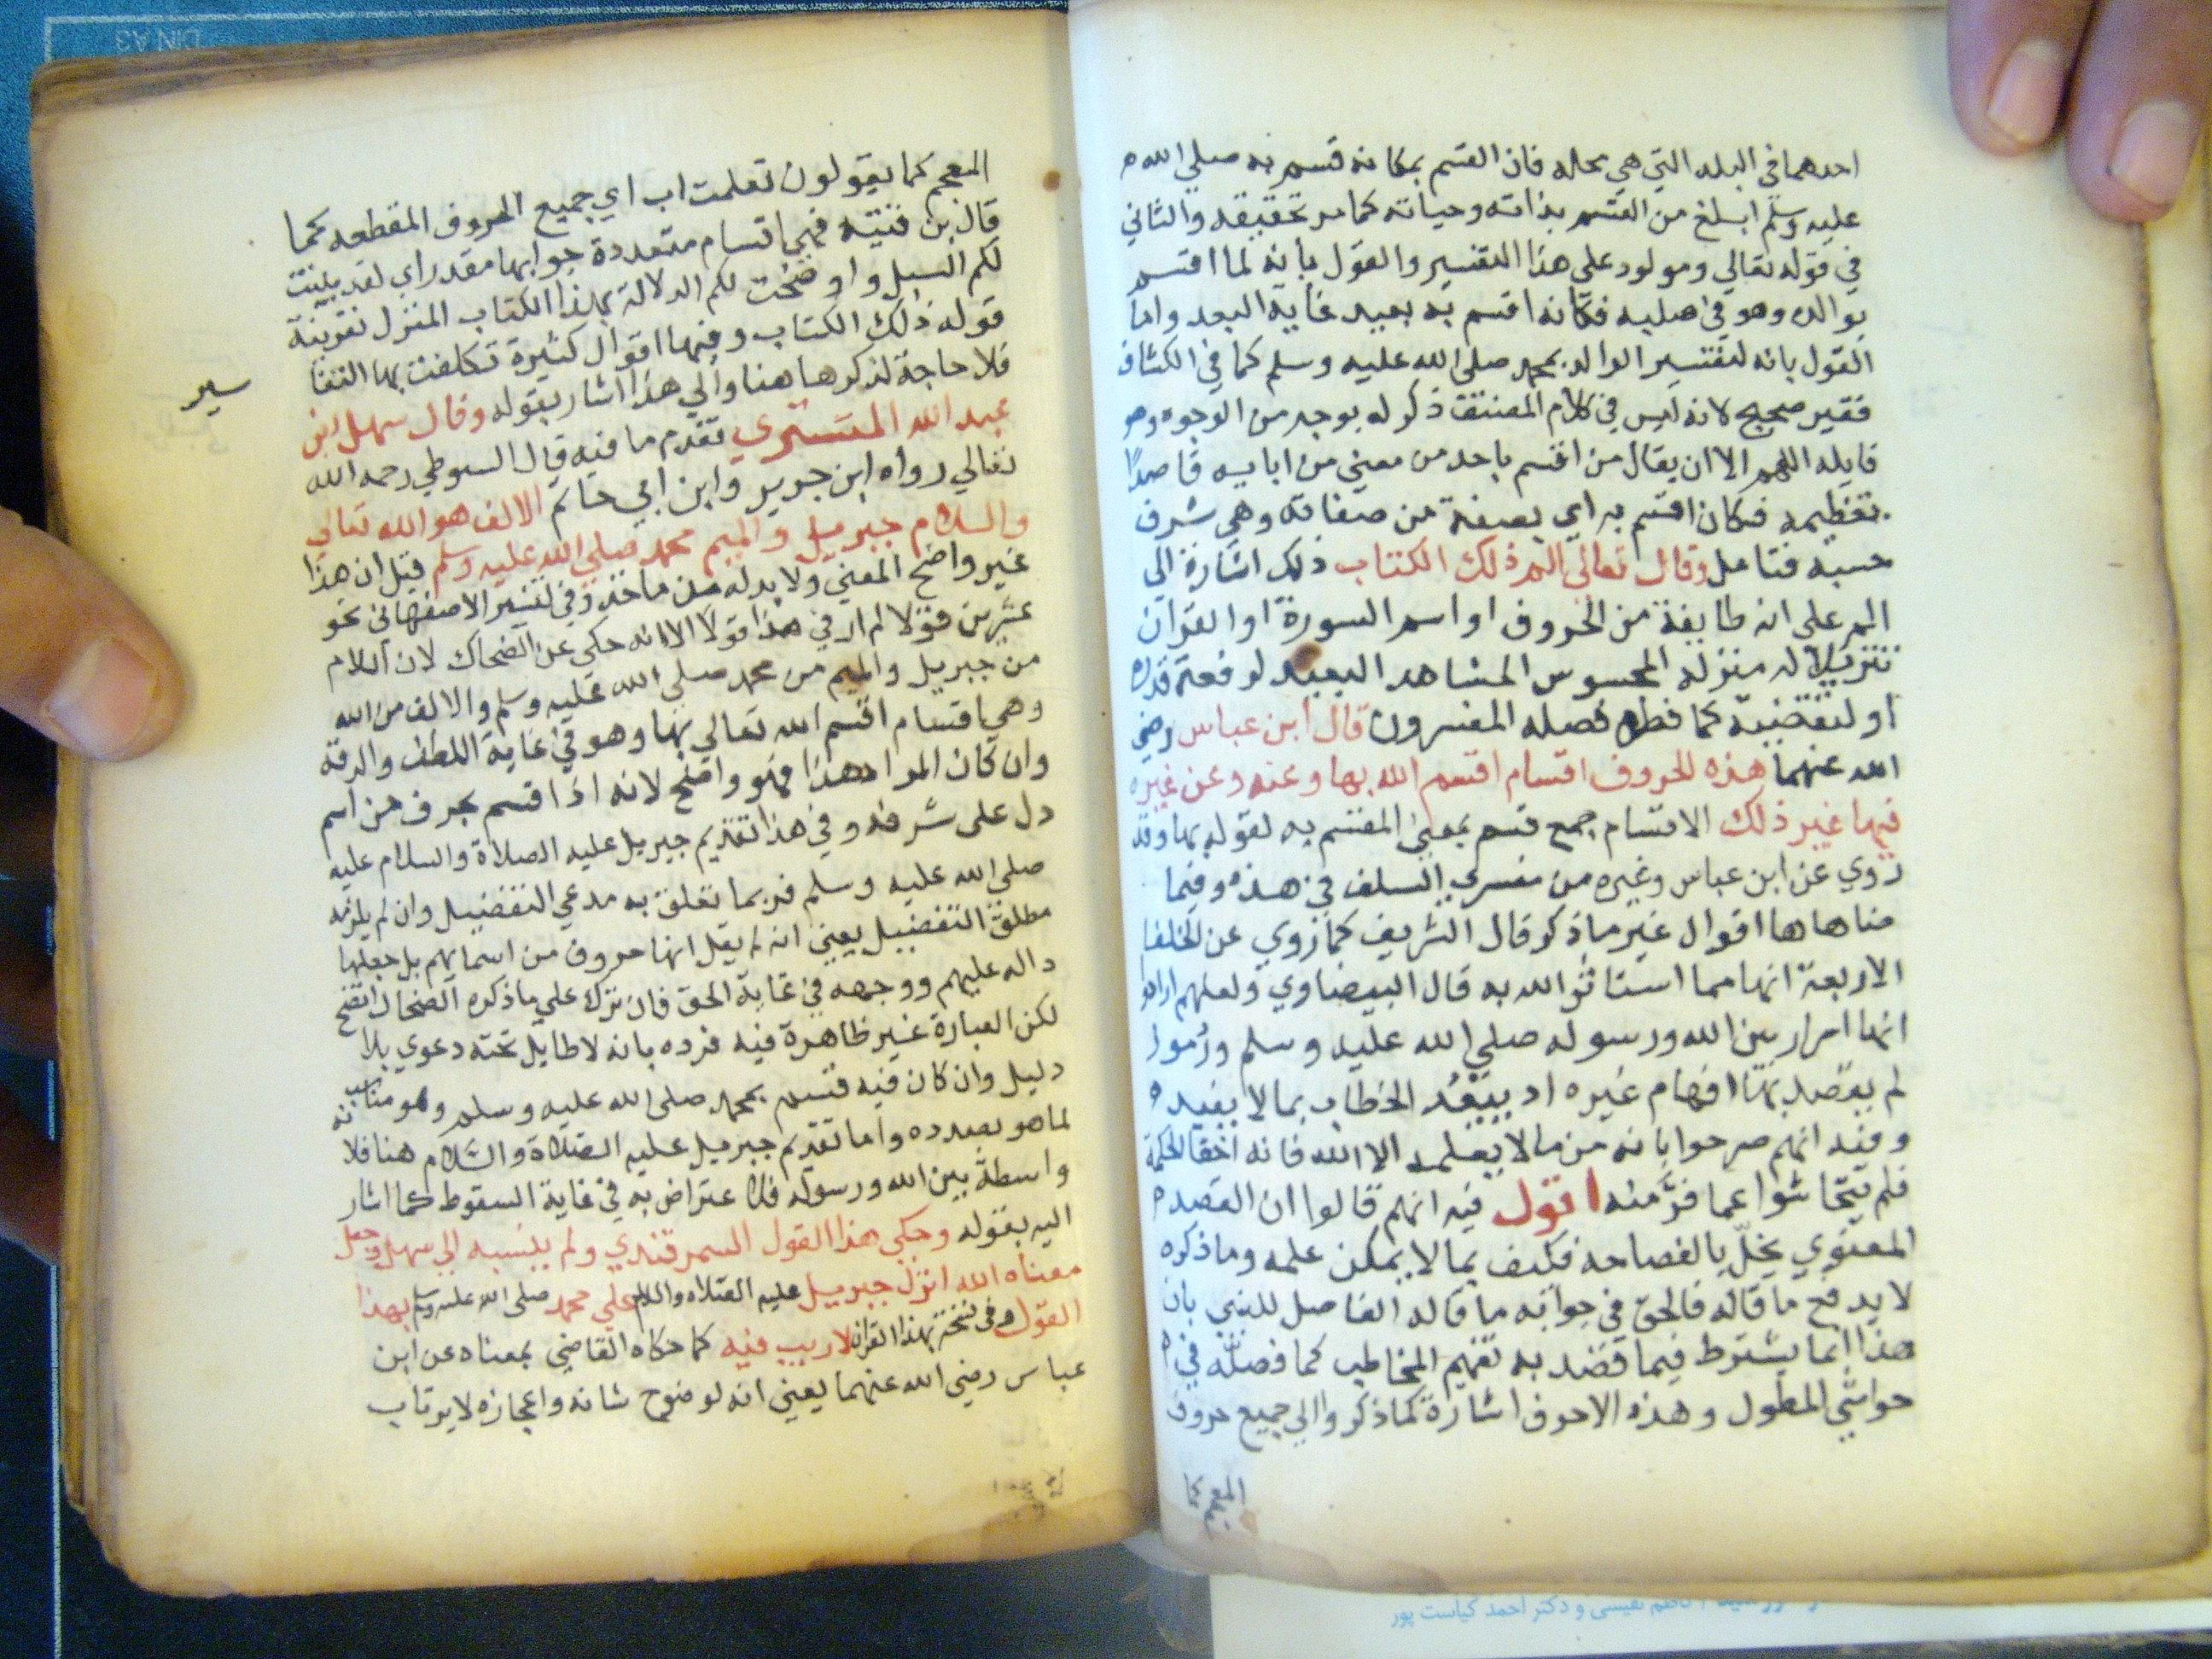 احدهما في البلد التي هي محله فان القسم بمكانه قسم به صلى الله
عليه وسلم ابلغ من القسم بذاته وحياته كما مر تحقيقه والثاني
في قوله تعالي ومولود على هذا التفسير والقول بانه لما اقسم
بوالده وهو في صلبه فكانه اقسم به بعيد غاية البعد واما
القول بانه لتفسير الوالد بمحمد صلى الله عليه وسلم كما في الكشاف
فغير صحيح لانه ليس في كلام المصنف ذكر له بوجه من الوجوه وهو
قايله اللهم الا ان يقال من اقسم باحد من معيني من ابايه قاصدًا
تعظيمه فكان اقسم به اي بصفة من صفاته وهي شرف
حسبه فتامل وقال تعالى الم ذلك الكتاب ذلك اشارة الي
الم على انه طايفة من الحروف او اسم السورة او القران
تنزيلا له منزلة المحسوس المشاهد البعيد لرفعة قدره
او لتقضيه كما فصله المفسرون قال ابن عباس رضي
الله عنهما هذه الحروف اقسام اقسم الله بها وعنه وعن غيره
فيها غير ذلك الاقسام جمع قسم بمعنى المقسم به لقوله بها وقد
روي عن ابن عباس وغيره من مفسري السلف في هذه وفيما
ضاهاها اقوال غير ما ذكر قال الشريف كما روي عن الخلفا
الاربعة انها مما استاثر الله به قال البيضاوي ولعلهم ارادوا
انها اسرار بين الله ورسوله صلي الله عليه وسلم ورموز
لم يقصد بها افهام غيره اد يبعُد الخطاب بما لا يفيد
وفيه انهم صرحوا بانه من ما لا يعلمه الا الله فانه اخفا لحكمة
فلم يتحاشوا عما فرّ منه اقول فيه انهم قالوا ان القصد
المعنوي يخلّ بالفصاحه فكيف بما لا يمكن علمه وما ذكره
لا يدفع ما قاله فالحق في جوابه ما قاله الفاضل الليثي بان
هذا انما يشترط فيما قصد به تفهيم المخاطب كما فصله في
حواشي المطول وهذه الاحرف اشارة كما ذكروا الي جميع حروف
المعجم كما
المعجم كما يقولون تعلمت اب اي جميع الحروف المقطعه كما
قال بن قتيبه فهي اقسام متعددة جوابها مقدر اي لقد بينت
لكم السبل واوضحت لكم الدلالة بهذا الكتاب المنزل بقرينة
قوله ذلك الكتاب وفيها اقوال كثيرة تكلفت بها التفا
سير
فلا حاجة لذكرها هنا والي هذا اشار بقوله وقال سهل بن
عبد الله التستري تقدم ما فيه قال السيوطي رحمه الله
تعالي رواه ابن جرير وابن ابي حاتم الالف هو الله تعالي
والسلام جبريل والميم محمد صلي الله عليه وسلم قيل ان هذا
غير واضح المعني ولا بد له من ماخذ وفي تفسير الاصفهاني نحو
عشرين قولا لم ار في هذا قولا الا انه حكي عن الضحاك لان اللام
من جبريل والميم من محمد صلى الله عليه وسلم والالف من الله
وهي اقسام اقسم الله تعالي بها وهو في غاية اللطف والدقة
وان كان المراد هذا فهو واضح لانه اذا اقسم بحرف من اسم
دل على شرفه وفي هذا تقديم جبريل عليه الصلاة والسلام عليه
صلى الله عليه وسلم فربما تعلق به مدعي التفضيل وان لم يلزمه
مطلق التفضيل يعني انه لم يقل انها حروف من اسمائهم بل جعلها
داله عليهم ووجهه في غاية الحق فان نزل على ما ذكره الضحاك اتضح
لكن العبارة غير ظاهرة فيه فرده بانه لا طايل تحته دعوي بلا
دليل وان كان فيه قسم بمحمد صلى الله عليه وسلم وهو مناسب
لما هو بصدده واما تقديم جبريل عليه الصلاة والسلام هنا فلانه
واسطة بين الله ورسوله فالاعتراض به في غاية السقوط كما اشار
اليه بقوله وحكي هذا القول السمرقندي ولم ينسبه الي سهل وجعل
معناه الله انزل جبريل عليه الصلاه والسلام علي محمد صلى الله عليه وسلم بهذا
القول وفي نسخة بهذا القران لا ريب فيه كما حكاه القاضي بمعناه عن ابن
عباس رضي الله عنهما يعني انه لوضوح شانه واعجازه لا يرتاب
DIN A3
نفیسی و دکتر احمد کیاست پور